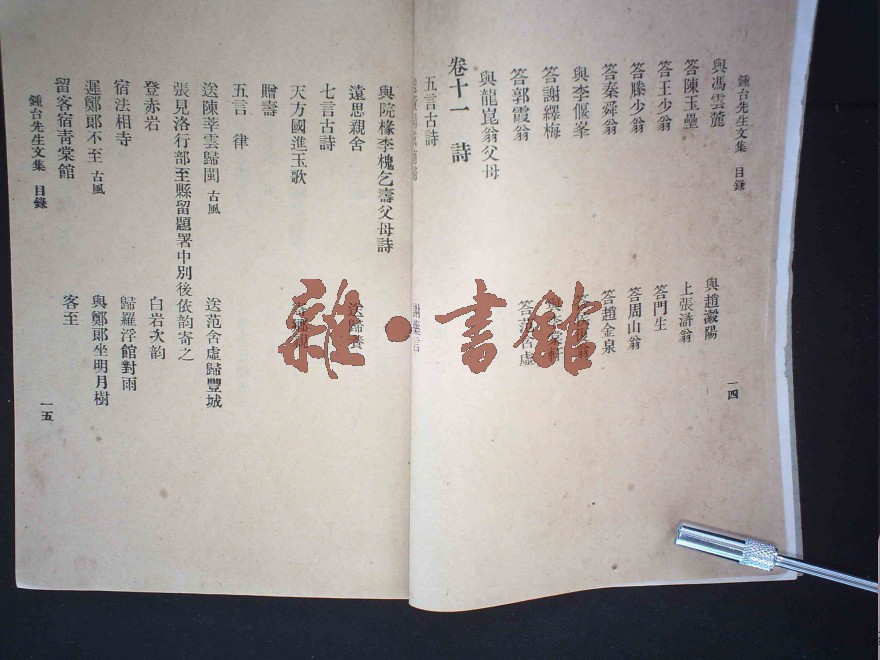 鍾台先生文集 目錄
一四
與馮雲麓
與趙瀫陽
答陳玉壘
上張滸翁
答王少翁
答門生
答滕少翁
答周山翁
答秦舜翁
答趙金泉
與李偃峯
答謝繹梅
答郭霞翁
與龍崑翁父母
卷十一 詩
五言古詩
與院椽李槐乞壽父母詩
遠思親舍
七言古詩
天方國進玉歌
贈壽
五言 律
送陳莘雲歸閩 古風
送范含虛歸豐城
張見洛行部至縣留題署中別後依韵寄之
登赤岩
白岩次韵
宿法相寺
歸羅浮館對雨
遲鄭郎不至 古風
與鄭郎坐明月樹
留客宿靑棠館
客至
鍾台先生文集 目錄
一五
雜·書館